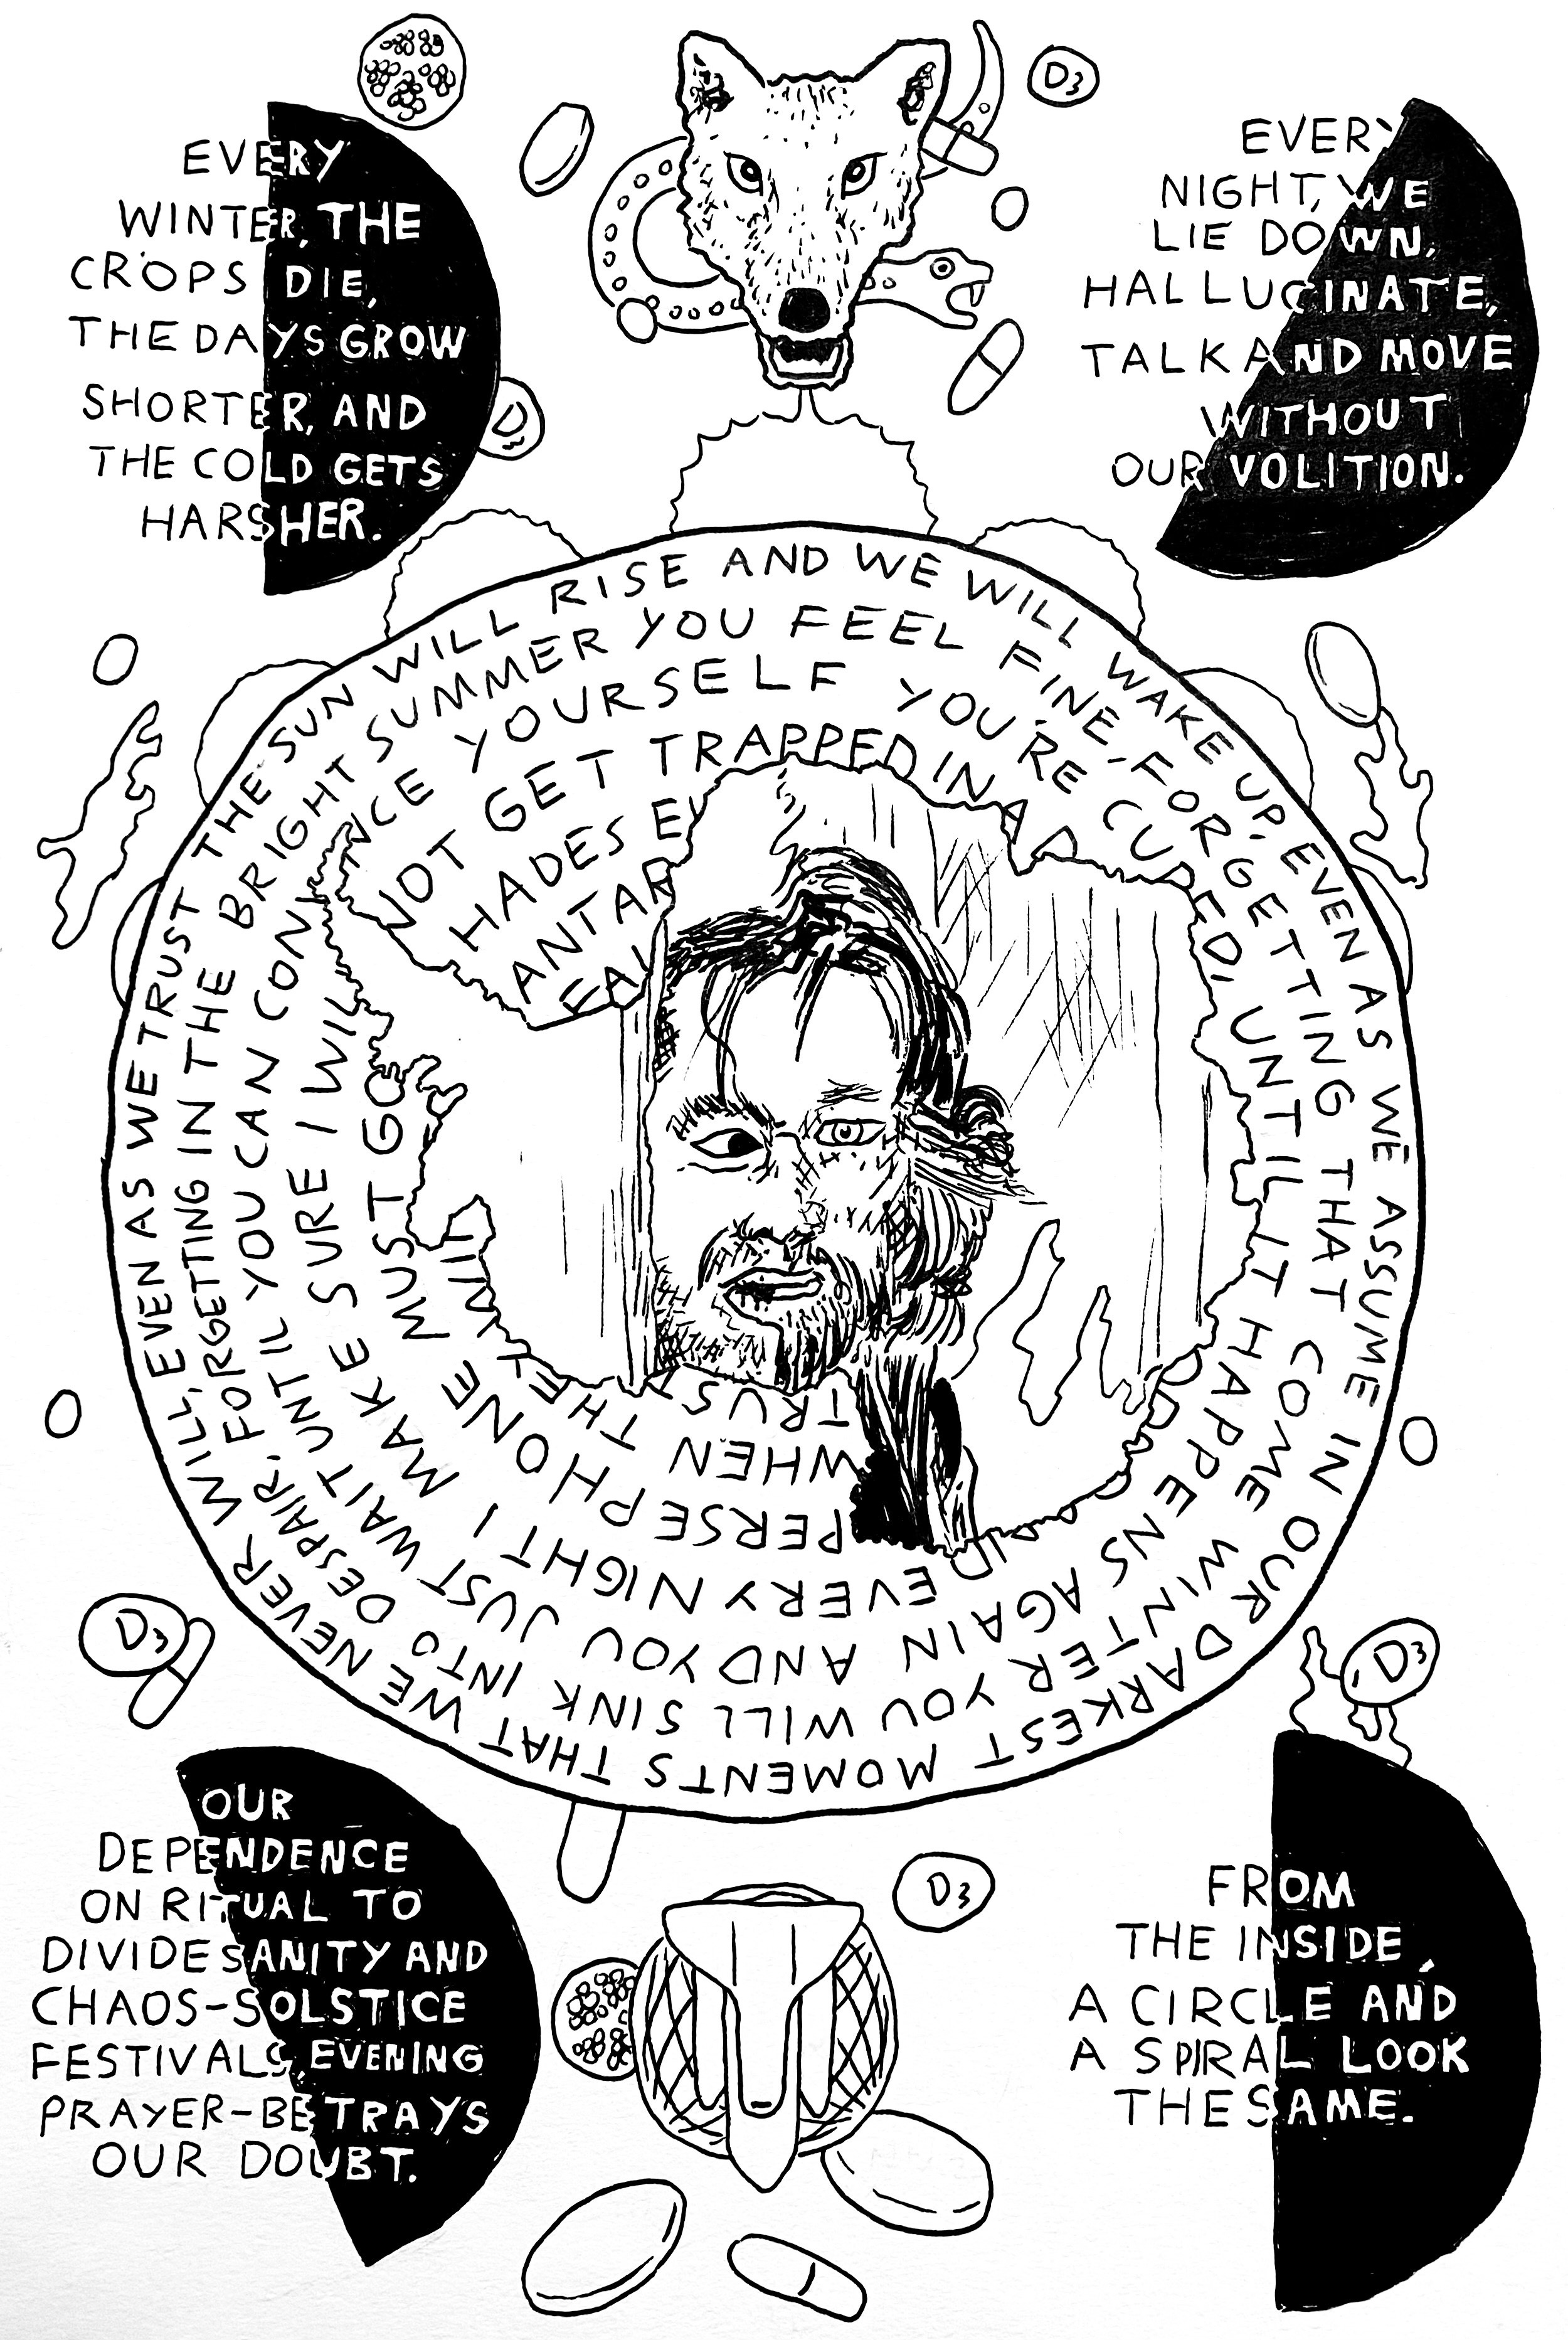 D3
EVERY
WINTER, THE
CROPS DIE,
THE DAYS GROW
SHORTER, AND
THE COLD GETS
HARSHER.
EVERY
NIGHT, WE
LIE DOWN,
HALLUCINATE,
TALK AND MOVE
WITHOUT
OUR VOLITION.
D
EVEN AS WE TRUST THE SUN WILL RISE AND WE WILL WAKE UP, EVEN AS WE ASSUME IN OUR DARKEST MOMENTS THAT WE NEVER WILL,
FORGETTING IN THE BRIGHT SUMMER YOU FEEL FINE, FORGETTING THAT COME WINTER YOU WILL SINK INTO DESPAIR,
JUST WAIT UNTIL YOU CAN CONVINCE YOURSELF YOU'RE CURED, UNTIL IT HAPPENS AGAIN AND YOU
EVERY NIGHT I MAKE SURE I WILL NOT GET TRAPPED IN A
PERSEPHONE MUST GO
HADES
WHEN THEY
TRUST
D3
D3
OUR
DEPENDENCE
ON RITUAL TO
DIVIDE SANITY AND
CHAOS-SOLSTICE
FESTIVALS, EVENING
PRAYER-BETRAYS
OUR DOUBT.
D3
FROM
THE INSIDE,
A CIRCLE AND
A SPIRAL LOOK
THE SAME.